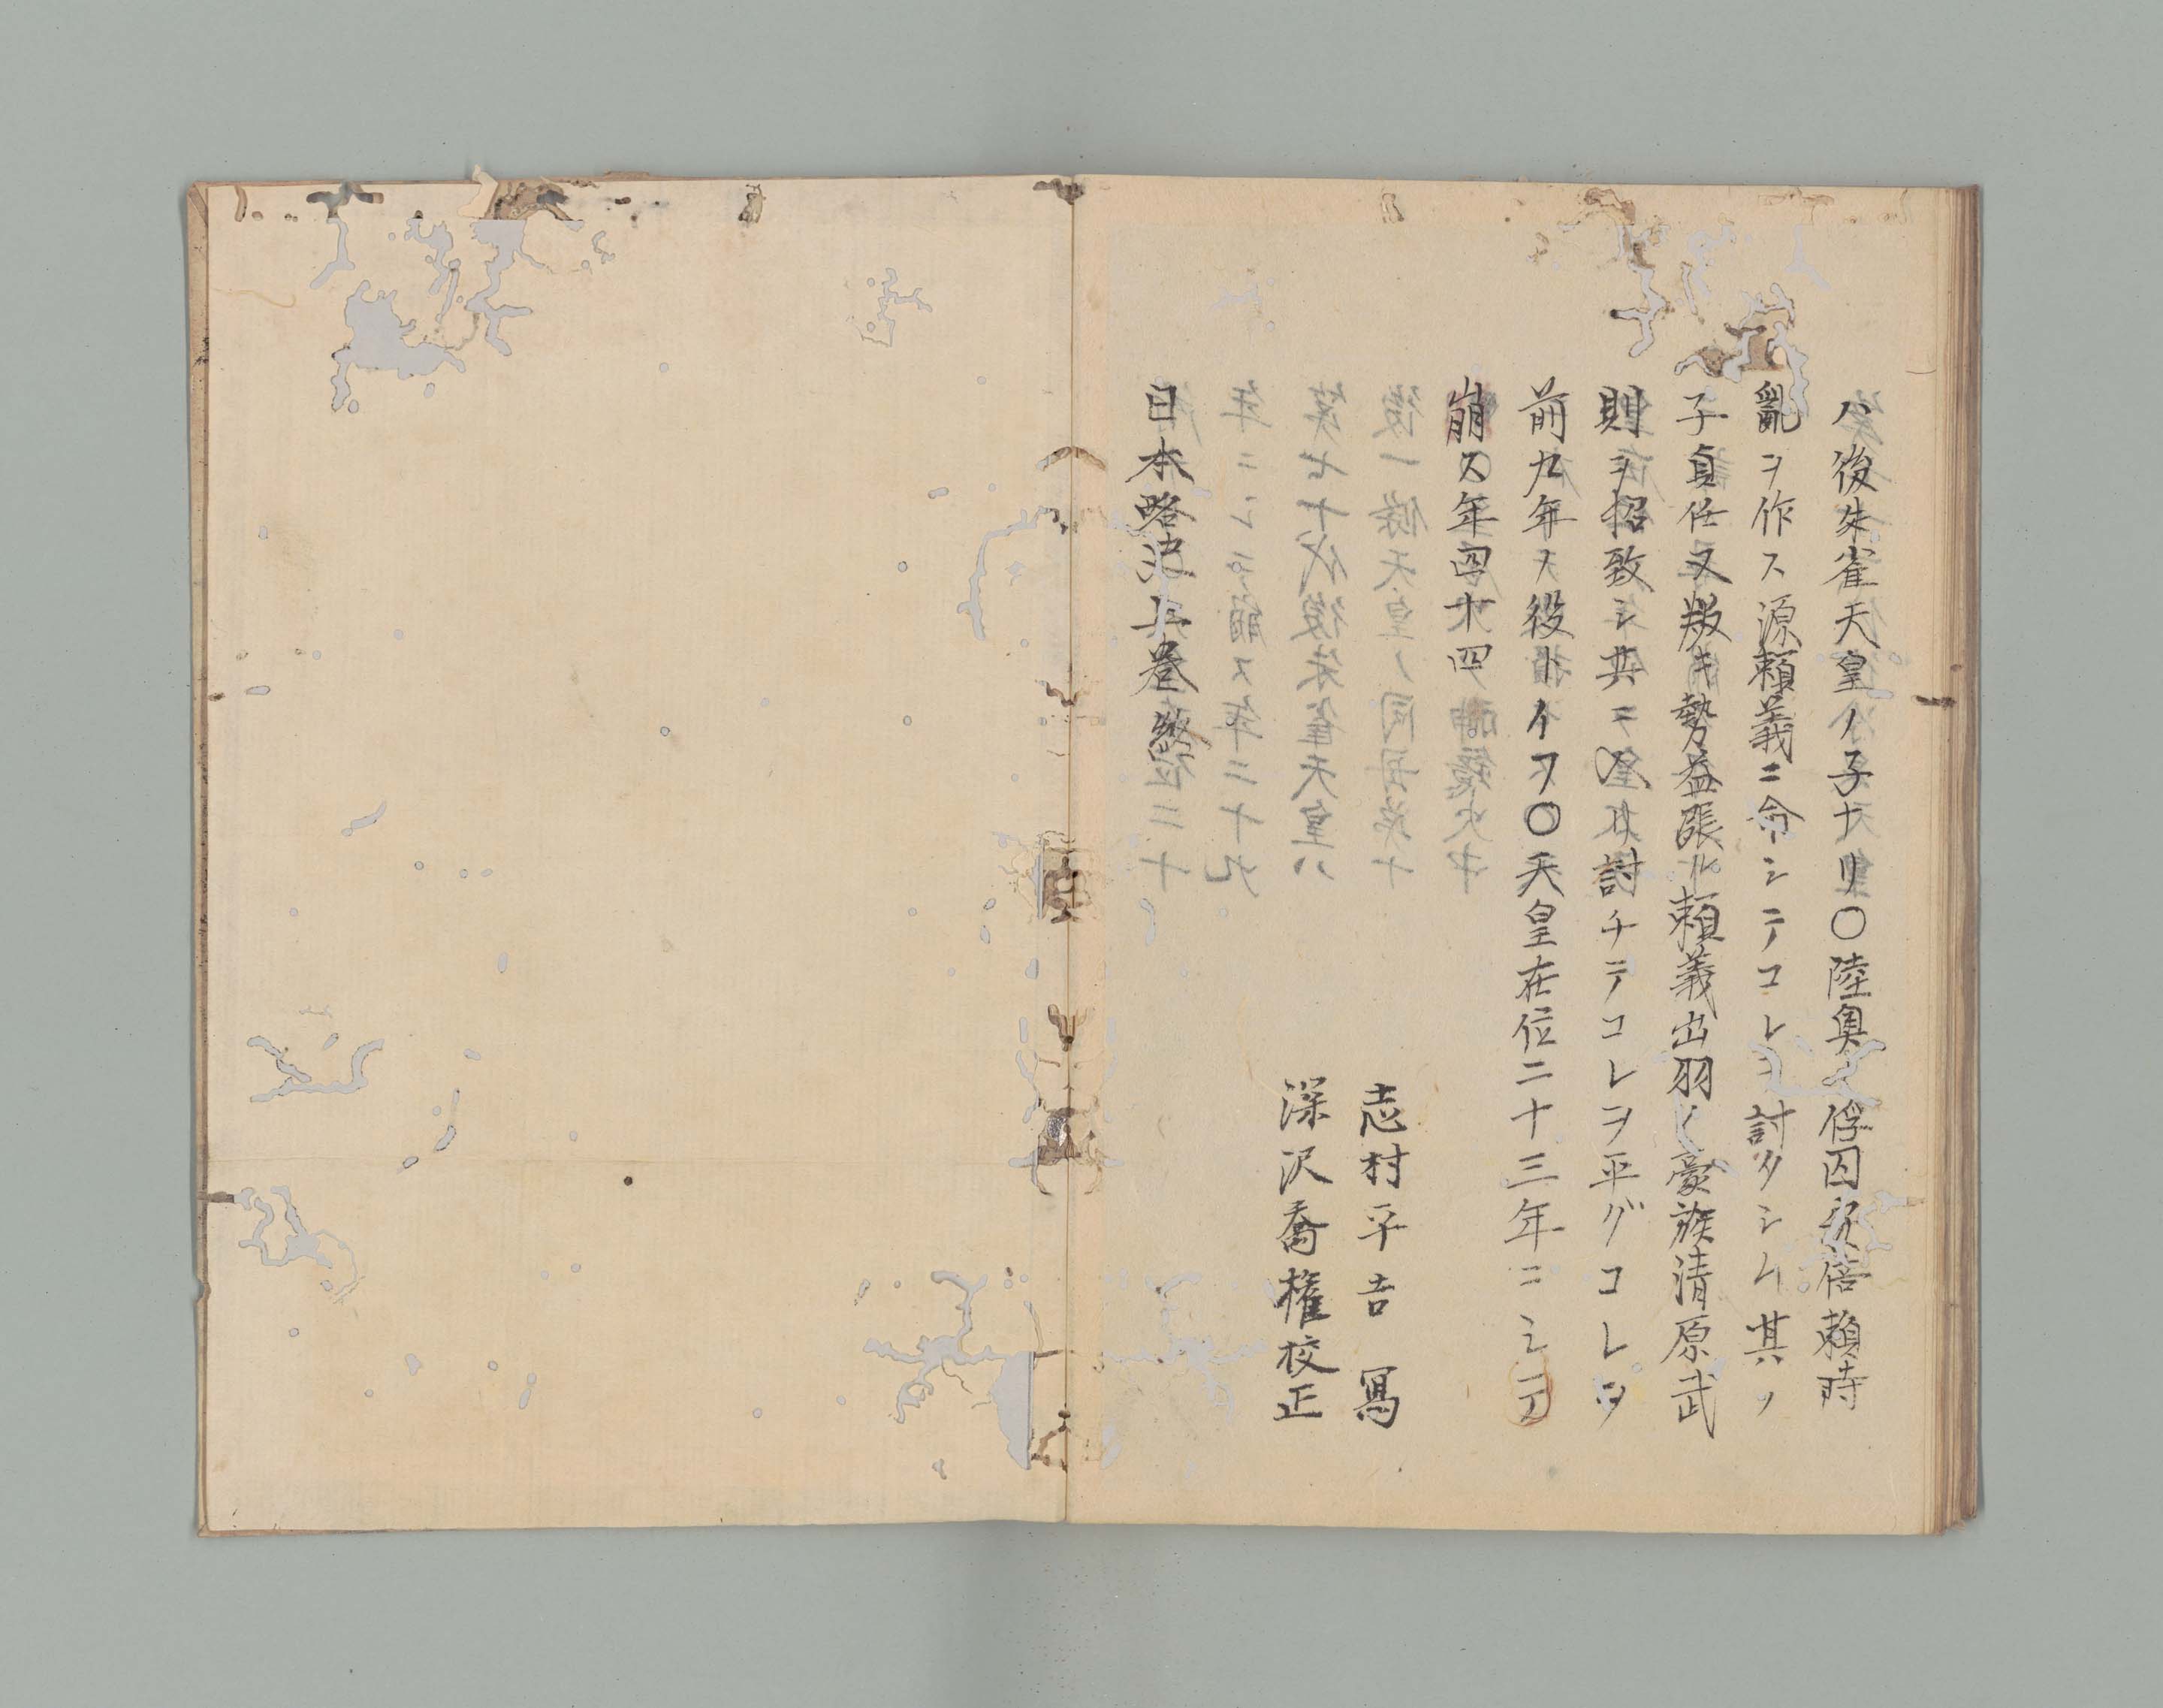 ハ後朱雀天皇ノ子ナリ〇陸奥ノ俘囚安倍頼時
亂ヲ作ス源頼義ニ命シテコレヲ討タシム其ノ
子貞任又叛キ勢益張ル頼義出羽ノ豪族清原武
則ヲ招致シ共ニ討チテコレヲ平グコレヲ
前九年ノ役トイフ〇天皇在位二十三年ニシテ
崩ス年四十四
志村平吉 寫
深沢喬権校正
日本略史上巻 終